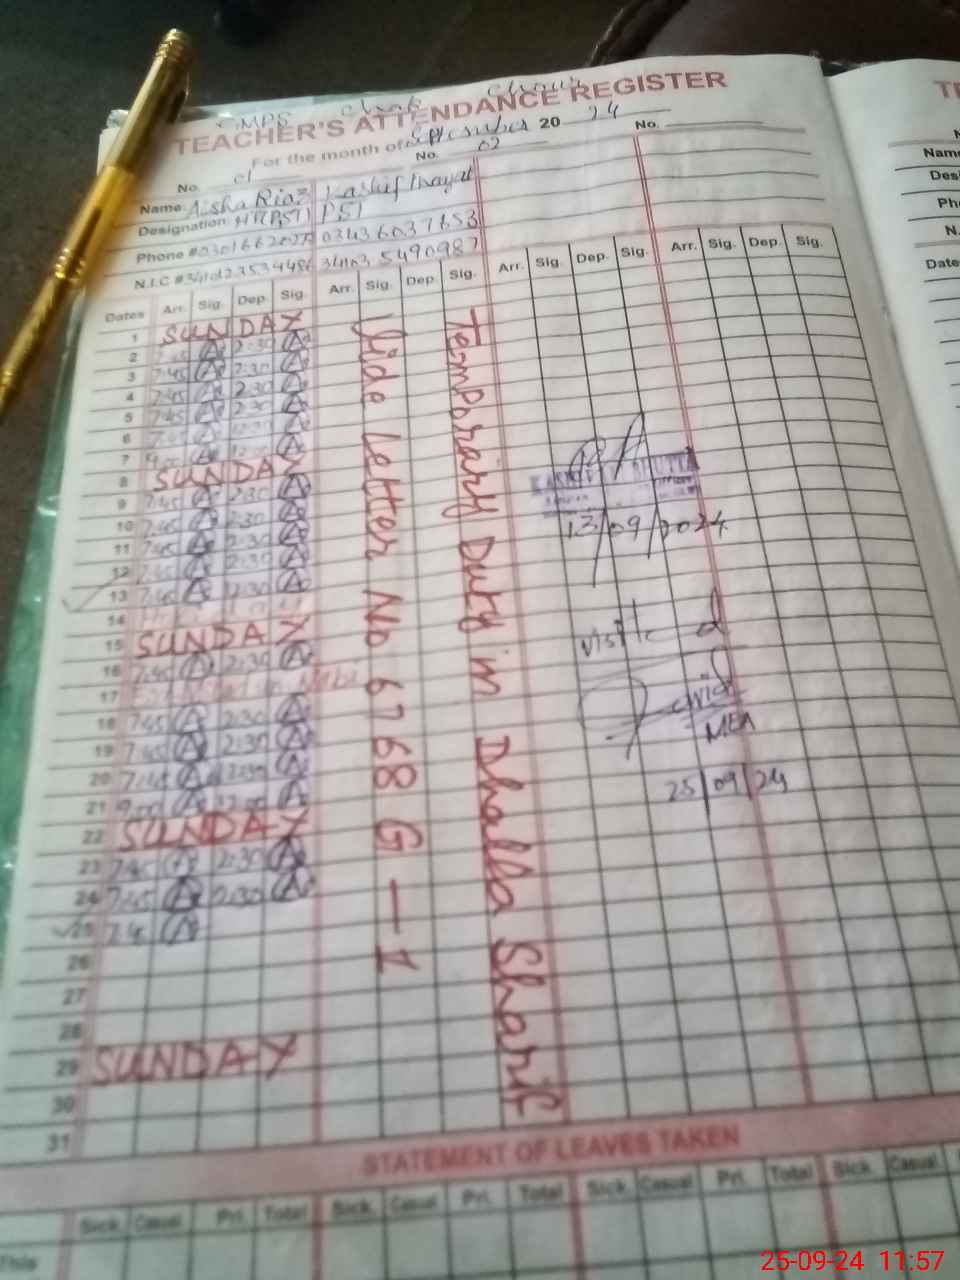 GMPS Chak
TEACHER'S ATTENDANCE REGISTER
For the month of September 20 24
No. 01 No. 02 No.
Name: Aisha Riaz Kashif Inayat
Designation: PST
Phone # 03436037853
N.I.C # 5490987
Dates Arr. Sig. Dep. Sig. Arr. Sig. Dep. Sig. Arr. Sig. Dep. Sig. Arr. Sig. Dep. Sig.
1 SUNDAY
2 7:45 2:30
3 7:45 2:30
4 7:45 2:30
5 7:45 2:30
6 7:45 12:30
7 12:00
8 SUNDAY
9 7:45 2:30
10 7:45 2:30
11 7:45 2:30
12 7:45 2:30
13 7:45 2:30
14
15 SUNDAY
16 7:45 2:30
17
18 7:45 2:30
19 7:45 2:30
20 7:45
21 9:00 12:00
22 SUNDAY
23 7:45 2:30
24 7:45 2:30
25 7:45
26
27
28
29 SUNDAY
30
31
Vide Letter No 6768 G-I
Temporairy Duty in Dhalla Sharif
13/09/2024
visited
MEA
25/09/24
STATEMENT OF LEAVES TAKEN
Sick. Casual Pri. Total Sick. Casual Pri. Total Sick. Casual Pri. Total Sick. Casual.
This
Name
Des
Ph
N.
Date
25-09-24 11:57